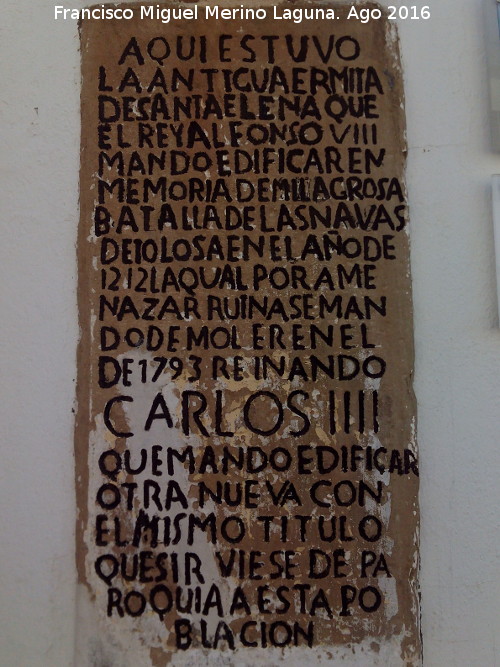 Francisco Miguel Merino Laguna. Ago 2016
AQUI ESTUVO
LA ANTIGUA ERMITA
DE SANTA ELENA QUE
EL REY ALFONSO VIII
MANDO EDIFICAR EN
MEMORIA DE MILAGROSA
BATALLA DE LAS NAVAS
DE TOLOSA EN EL AÑO DE
1212 LA QUAL POR AME
NAZAR RUINA SE MAN
DO DEMOLER EN EL
DE 1793 REINANDO
CARLOS IIII
QUE MANDO EDIFICAR
OTRA NUEVA CON
EL MISMO TITULO
QUE SIRVIESE DE PA
ROQUIA A ESTA PO
BLACION